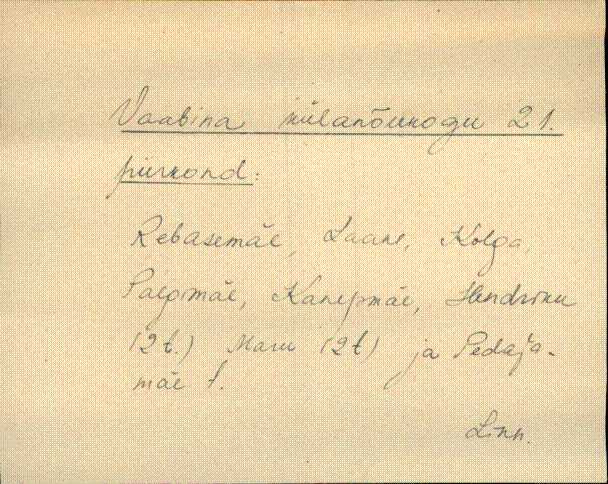 Vaabina külanõukogu 21.
piirkond:
Rebasemäe, Laane, Kolga,
Palgimäe, Kanepmäe, Hendriku
(2 t.) Maru (2 t) ja Pedaja-
mäe t.
Linn.